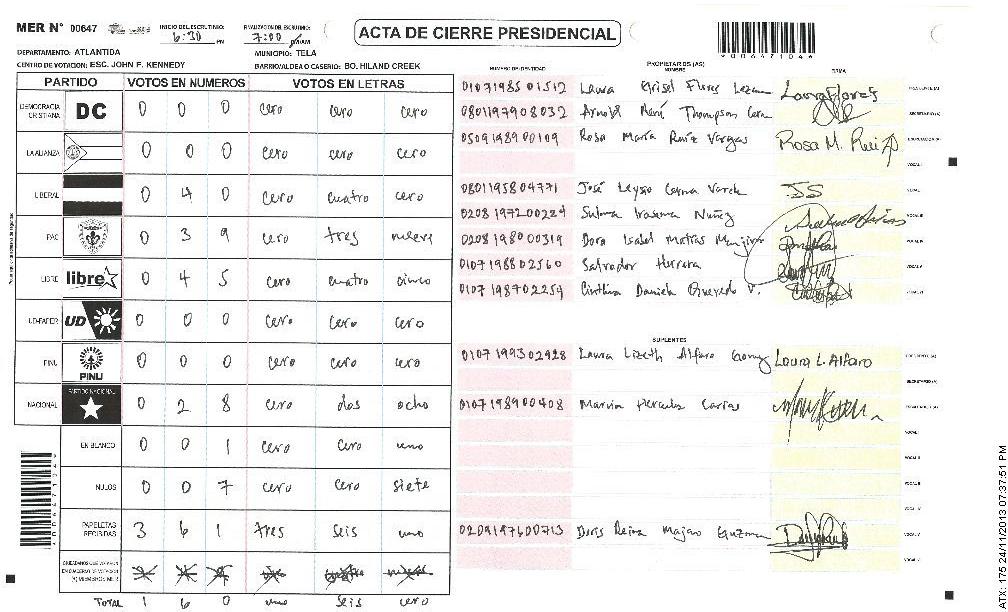 MER N° 00647
INICIO DEL ESCRUTINIO: 6:30 PM
FINALIZACION DEL ESCRUTINIO: 7:00
ACTA DE CIERRE PRESIDENCIAL
DEPARTAMENTO: ATLANTIDA
MUNICIPIO: TELA
CENTRO DE VOTACION: ESC. JOHN F. KENNEDY
BARRIO/ALDEA O CASERIO: BO. HILAND CREEK
PARTIDO VOTOS EN NUMEROS VOTOS EN LETRAS
DEMOCRACIA CRISTIANA DC 0 0 0 cero cero cero
LA ALIANZA 0 0 0 cero cero cero
LIBERAL 0 4 0 cero cuatro cero
PAC 0 3 9 cero tres nueve
LIBRE libre 0 4 5 cero cuatro cinco
UD-FAPER UD 0 0 0 cero cero cero
PINU PINU 0 0 0 cero cero cero
NACIONAL PARTIDO NACIONAL 0 2 8 cero dos ocho
EN BLANCO 0 0 1 cero cero uno
NULOS 0 0 7 cero cero siete
PAPELETAS RECIBIDAS 3 6 1 tres seis uno
CIUDADANOS QUE VOTARON EN CUADERNO DE VOTACION (+) MIEMBROS MER
TOTAL 1 6 0 uno seis cero
*006471046*
NUMERO DE IDENTIDAD
PROPIETARIOS (AS)
NOMBRE
FIRMA
0107198501512 Laura Grisel Flores Lezama Laura Flores PRESIDENTE (A)
0801197908032 Arnold René Thompson SECRETARIO (A)
0509198900109 Rosa María Ruíz Vargas Rosa M. Ruiz ESCRUTADOR (A)
VOCAL I
0801195804771 José VOCAL II
0208197200224 Nuñez VOCAL III
0208198000319 Dora Isabel VOCAL IV
0107198802560 Salvador Herrera VOCAL V
0107198702254 Cinthia Daniela Quevedo V. VOCAL VI
SUPLENTES
0107199302928 Laura Lizeth Alfaro Laura L. Alfaro PRESIDENTE (A)
SECRETARIO (A)
0107198900408 Marvin ESCRUTADOR (A)
VOCAL I
VOCAL II
VOCAL III
VOCAL IV
0209197600713 Doris Reina Guzman VOCAL V
VOCAL VI
ATX: 175 24/11/2013 07:37:51 PM